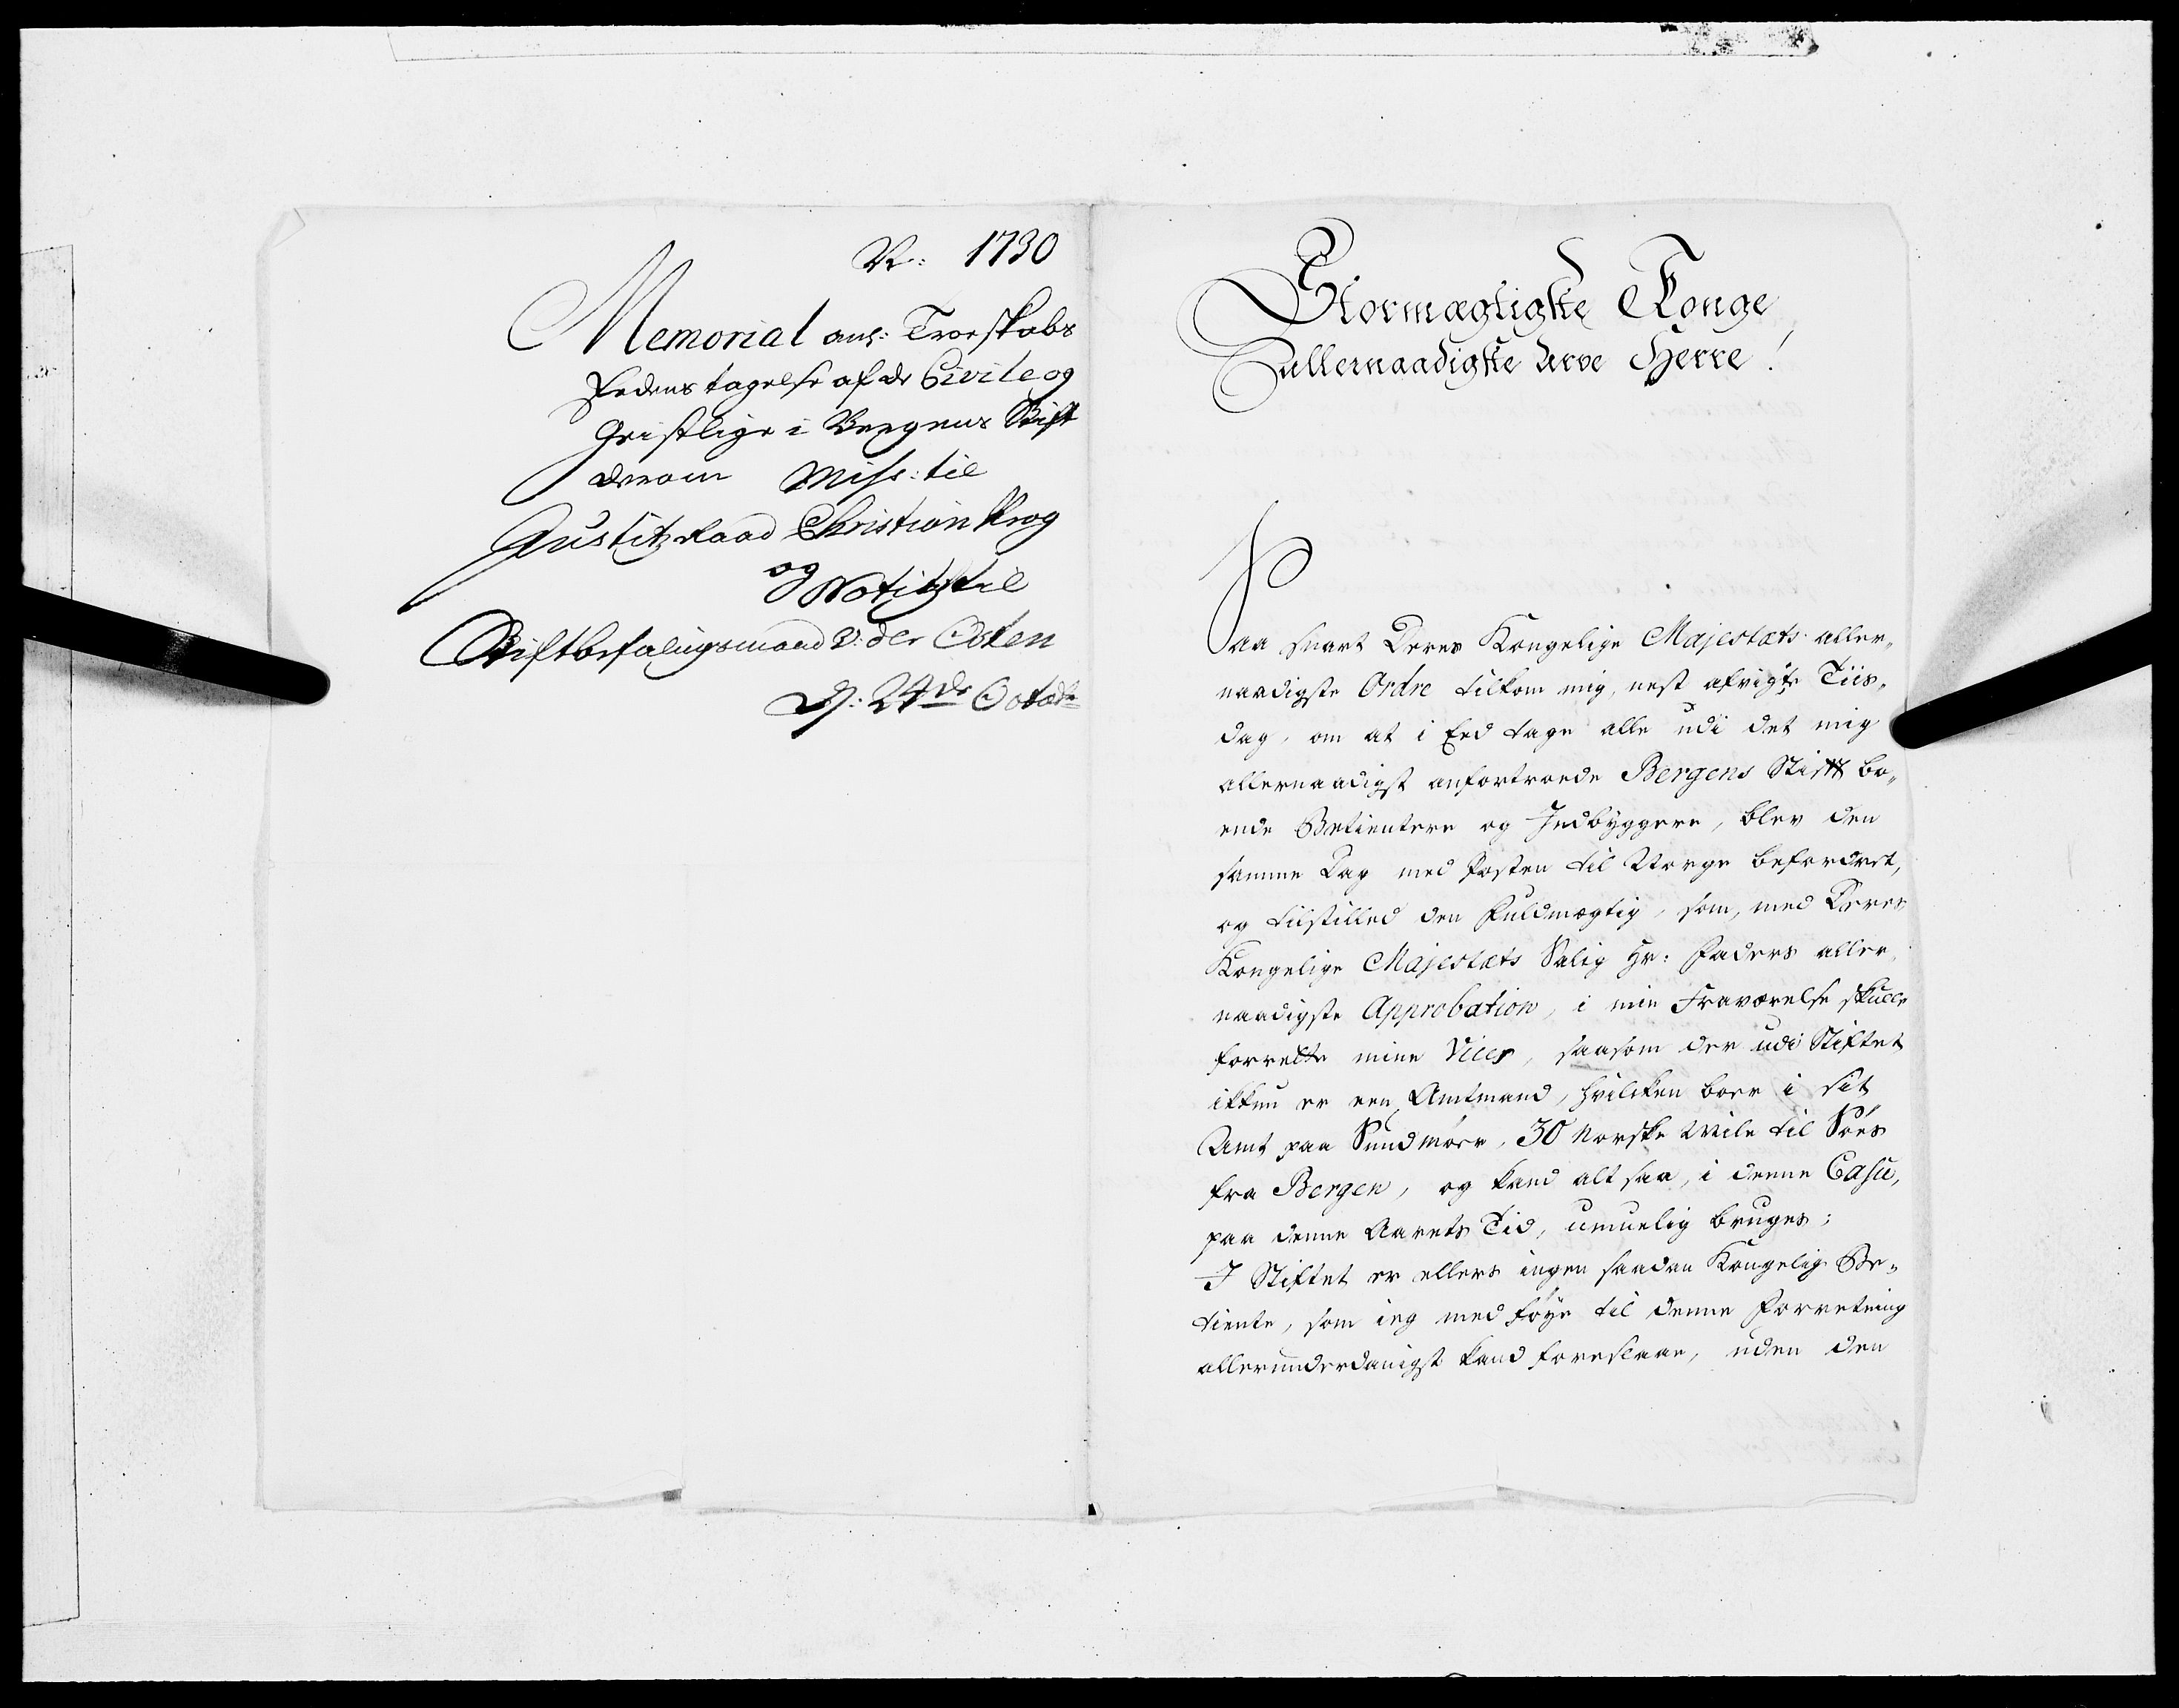 N: 1730
Memorial anl: Troeskabs
Eedens tagelse af de Civile og
Geistlige i Bergens Stift
derom Miss: til
Justitz Raad Christian Krog
og
Notitz til
Stiftbefalingsmand v: der Osten
D: 24de Octobr
Stormægtigste Konge
Allernaadigste Arve Herre!
Saa snart Deres Kongelige Majestæts aller-
naadigste Ordre tilkom mig, nest afvigte Tiis-
dag, om at i Eed tage alle udi det mig
allernaadigst anfortroede Bergens Stift bo-
ende Betientere og Indbyggere, blev den
samme Dag med Posten til Norge befordret,
og tilstilled den Fuldmægtig, som, med Deres
Kongelige Majestæts Salig Hr: Faders aller-
naadigste Approbation, i min Fraværelse skulle
forrette mine Vices, saasom der udi Stiftet
ikkun er een Amtmand, hvilcken boer i sit
Amt paa Sundmøer, 30 Norske Mile til Søes
fra Bergen, og kand alt saa, i denne Casu,
paa denne Aarets Tid, umuelig bruges;
I Stiftet er ellers ingen saadan Kongelig Be-
tiente, som ieg med Føye til denne Forretning
allerunderdanigst kand foreslaae, uden den